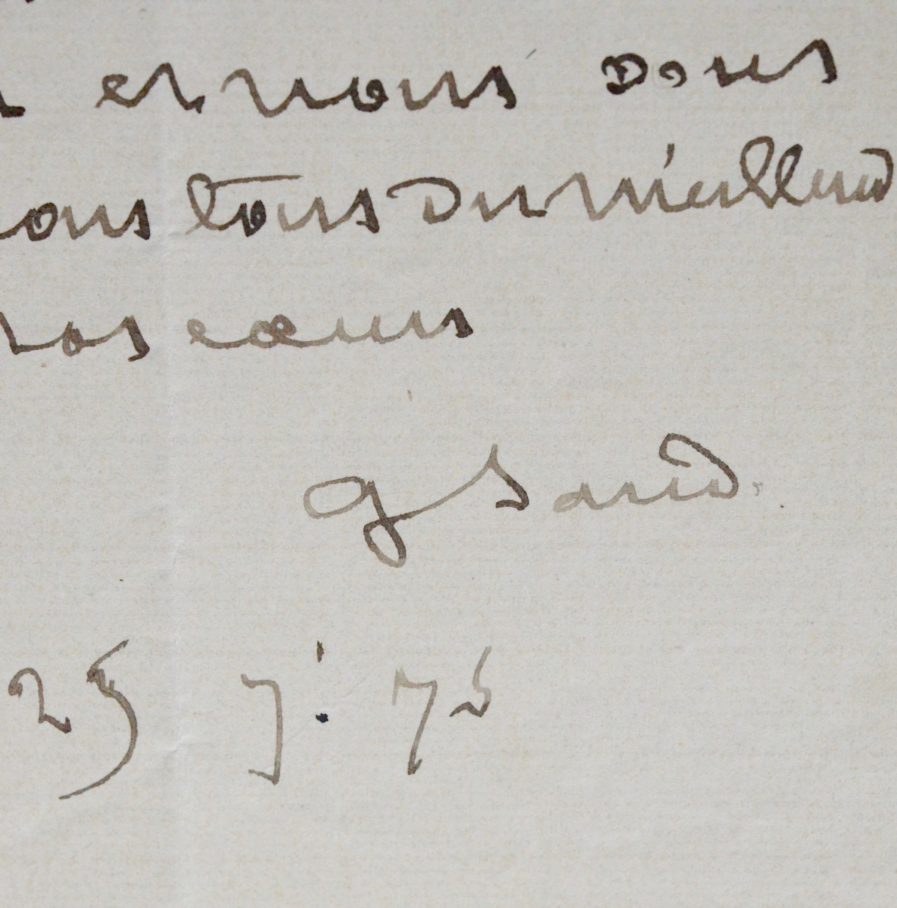 et nous vous
tous du meilleur
nos cœurs
G Sand
25 j: 75